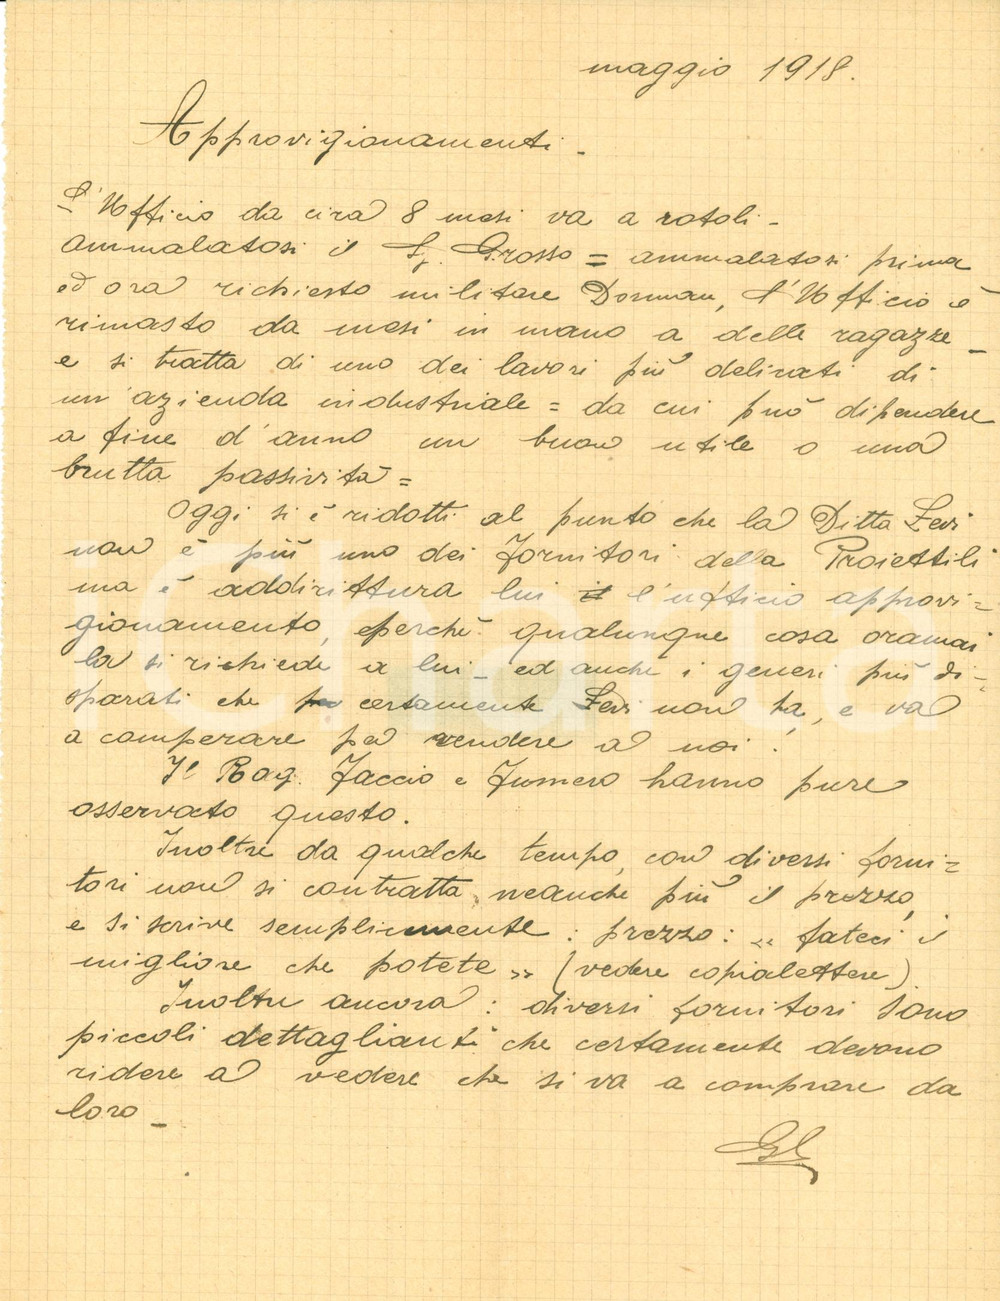 maggio 1918.
Approvigionamenti -
L'Ufficio da circa 8 mesi va a rotoli -
ammalatosi il Sg. Grosso = ammalatosi prima
ed ora richiesto militare Dorman, l'Ufficio è
rimasto da mesi in mano a delle ragazze -
e si tratta di uno dei lavori più delicati di
un'azienda industriale = da cui può dipendere
a fine d'anno un buon utile o una
brutta passività =
Oggi si è ridotti al punto che la Ditta Levi
non è più uno dei fornitori della Proiettili
ma è addirittura lui il l'ufficio approvi=
gionamento, eperchè qualunque cosa oramai
la si richiede a lui - ed anche i generi più di=
sparati che certamente Levi non ha, e va
a comperare per vendere a noi.
Il Rag. Faccio e Fumero hanno pure
osservato questo.
Inoltre da qualche tempo, con diversi forni=
tori non si contratta neanche più il prezzo,
e si scrive semplicemente: prezzo: « fateci il
migliore che potete » (vedere copialettere)
Inoltre ancora: diversi fornitori sono
piccoli dettaglianti che certamente devono
ridere a vedere che si va a comprare da
loro -
iCharta